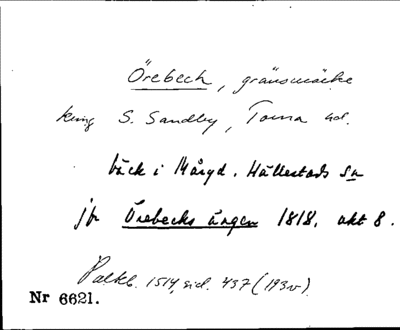 Örebeck, gränsmärke
kring S. Sandby, Torna hd.
bäck i Mårgd. Hällestads sn
jfr Örebecks ängen 1818, akt 8.
Palkb. 1514, sid. 437 (193v).
Nr 6621.